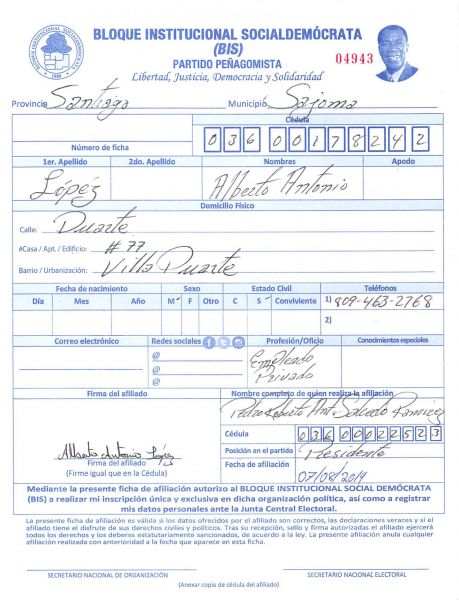 BLOQUE INSTITUCIONAL SOCIALDEMÓCRATA
(BIS)
PARTIDO PEÑAGOMISTA
04943
Libertad, Justicia, Democracia y Solidaridad
BLOQUE INSTITUCIONAL SOCIALDEMOCRATA
Provincia Santiago Municipio Sajoma
Cédula
Número de ficha 036 0017824 2
1er. Apellido 2do. Apellido Nombres Apodo
López Alberto Antonio
Domicilio Físico
Calle: Duarte
#Casa / Apt. / Edificio: # 77
Barrio / Urbanización: Villa Duarte
Fecha de nacimiento Sexo Estado Civil Teléfonos
Día Mes Año M F Otro C S Conviviente 1) 809-463-2768
2)
Correo electrónico Redes sociales Profesión/Oficio Conocimientos especiales
@ Empleado
@ Privado
@
Firma del afiliado Nombre completo de quien realiza la afiliación
Pedro Roberto Ant. Salcedo Ramirez
Cédula 036 0002252 3
Alberto Antonio López Posición en el partido Presidente
Firma del afiliado Fecha de afiliación 07/08/2019
(Firme igual que en la Cédula)
Mediante la presente ficha de afiliación autorizo al BLOQUE INSTITUCIONAL SOCIAL DEMÓCRATA
(BIS) a realizar mi inscripción única y exclusiva en dicha organización política, así como a registrar
mis datos personales ante la Junta Central Electoral.
La presente ficha de afiliación es válida si los datos ofrecidos por el afiliado son correctos, las declaraciones veraces y si el
afiliado tiene el disfrute de sus derechos civiles y políticos. Tras su recesión, sello y firma autorizadas el afiliado ejercerá
todos los derechos y los deberes estatutariamente sancionados, de acuerdo a la ley. La presente afiliación anula cualquier
afiliación realizada con anterioridad a la fecha que aparece en esta ficha.
SECRETARIO NACIONAL DE ORGANIZACIÓN SECRETARIO NACIONAL ELECTORAL
(Anexar copia de cédula del afiliado)